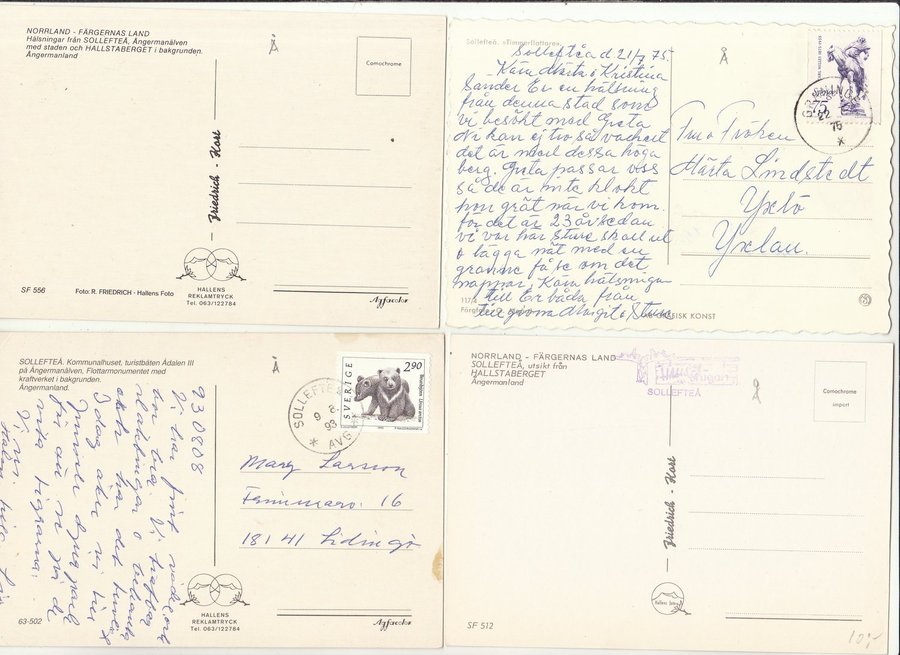 NORRLAND - FÄRGERNAS LAND
Hälsningar från SOLLEFTEÅ, Ångermanälven
med staden och HALLSTABERGET i bakgrunden.
Ångermanland
Comochrome
Friedrich - Kort
HALLENS
REKLAMTRYCK
Tel. 063/122784
SF 556
Foto: R. FRIEDRICH - Hallens Foto
Agfacolor
Sollefteå. «Timmerflottare»
Sollefteå d. 21/7 75.
Kära Märta o Kristina
Sänder Er en hälsning
från denna stad som
vi besökt med Greta
Ni kan ej tro så vackert
det är med dessa höga
berg. Greta passar viss
så de är inte klokt
hon grät när vi kom.
för det är 23 år sedan
vi var här Sture skall ut
o lägga nät med en
granne få se om det
nappar, Kära hälsningar
till Er båda från
Margit o Sture
117/
GRAFISK KONST
75
22
75
Märta Lindstedt
Yxlö
Yxlan.
SOLLEFTEÅ. Kommunalhuset, turistbåten Ådalen III
på Ångermanälven, Flottarmonumentet med
kraftverket i bakgrunden.
Ångermanland.
SOLLEFTEÅ
9 8
93
AVG
SVERIGE
2.90
930808
Vi har fint väder o
bor bra. Vi träffar
släktingar o
och har det
Idag åker vi till
djurpark
för att se på de
vita tigrarna.
Mary Larsson
16
181 41 Lidingö
HALLENS
REKLAMTRYCK
Tel. 063/122784
63-502
Agfacolor
NORRLAND - FÄRGERNAS LAND
SOLLEFTEÅ, utsikt från
HALLSTABERGET
Ångermanland
SOLLEFTEÅ
Comochrome
import
Friedrich - Kort
Hallens foto
SF 512
10:-